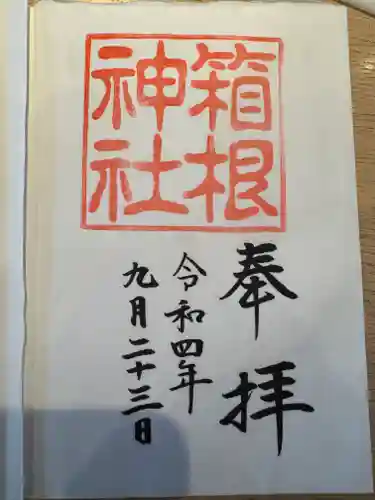 箱根
神社
奉拝
令和四年
九月二十三日